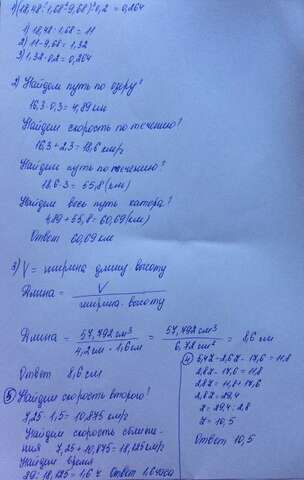 1) (18,48 : 1,68 - 9,68) · 0,2 = 0,264
1) 18,48 : 1,68 = 11
2) 11 - 9,68 = 1,32
3) 1,32 · 0,2 = 0,264
2) Найдем путь по озеру:
16,3 · 0,3 = 4,89 км
Найдем скорость по течению:
16,3 + 2,3 = 18,6 км/ч
Найдем путь по течению:
18,6 · 3 = 55,8 (км)
Найдем весь путь катера:
4,89 + 55,8 = 60,69 (км)
Ответ 60,69 км
3) V = ширина · длину · высоту
Длина = V / ширина · высоту
Длина = 57,792 см³ / 4,2 см · 1,6 см = 57,792 см³ / 6,72 см² = 8,6 см
Ответ 8,6 см
④ 5,4z - 2,6z - 17,6 = 11,8
2,8z - 17,6 = 11,8
2,8z = 11,8 + 17,6
2,8z = 29,4
z = 29,4 : 2,8
z = 10,5
Ответ 10,5
⑤ Найдем скорость второго:
7,25 · 1,5 = 10,875 км/ч
Найдем скорость сближе-
ния 7,25 + 10,875 = 18,125 км/ч
Найдем время
29 : 18,125 = 1,6 ч Ответ 1,6 часа